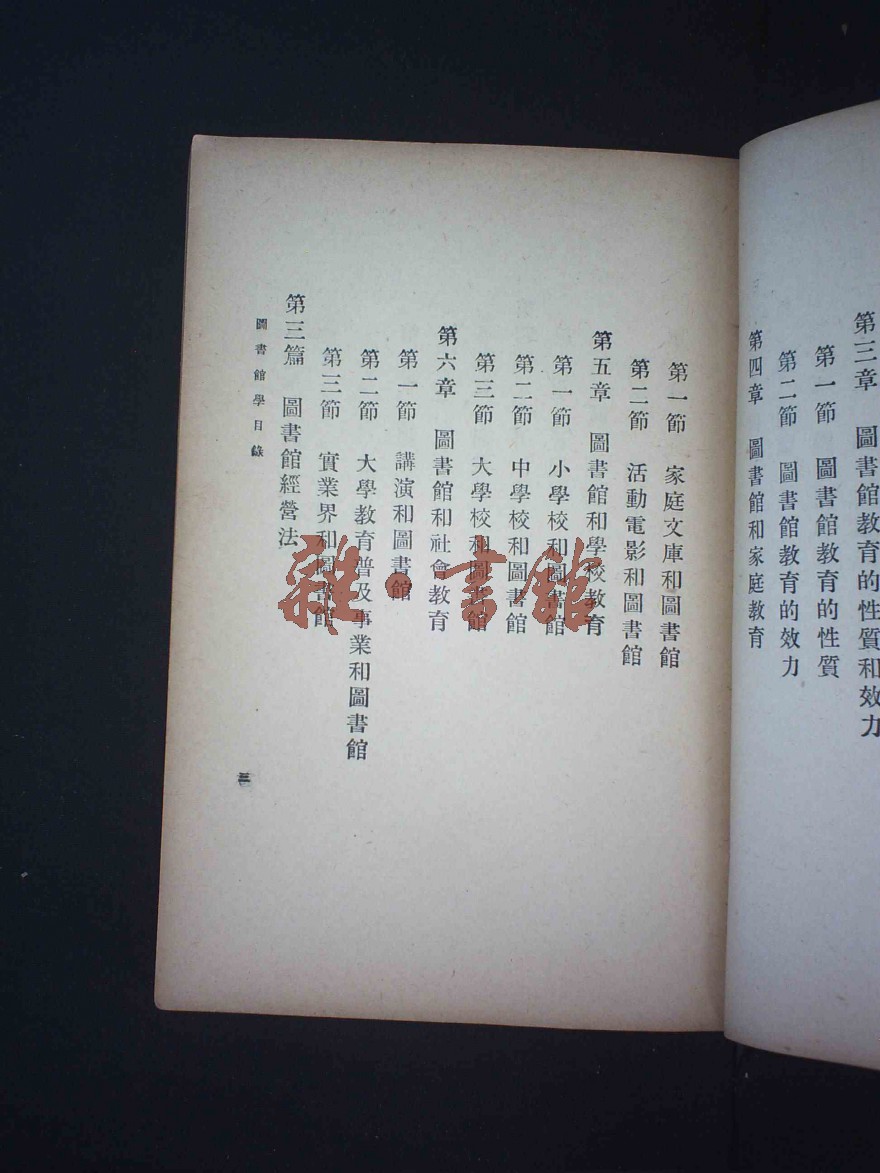 第三章 圖書館教育的性質和效力
第一節 圖書館教育的性質
第二節 圖書館教育的效力
第四章 圖書館和家庭教育
第一節 家庭文庫和圖書館
第二節 活動電影和圖書館
第五章 圖書館和學校教育
第一節 小學校和圖書館
第二節 中學校和圖書館
第三節 大學校和圖書館
第六章 圖書館和社會教育
第一節 講演和圖書館
第二節 大學教育普及事業和圖書館
第三節 實業界和圖書館
第三篇 圖書館經營法
圖書館學目錄
三
雜·書館